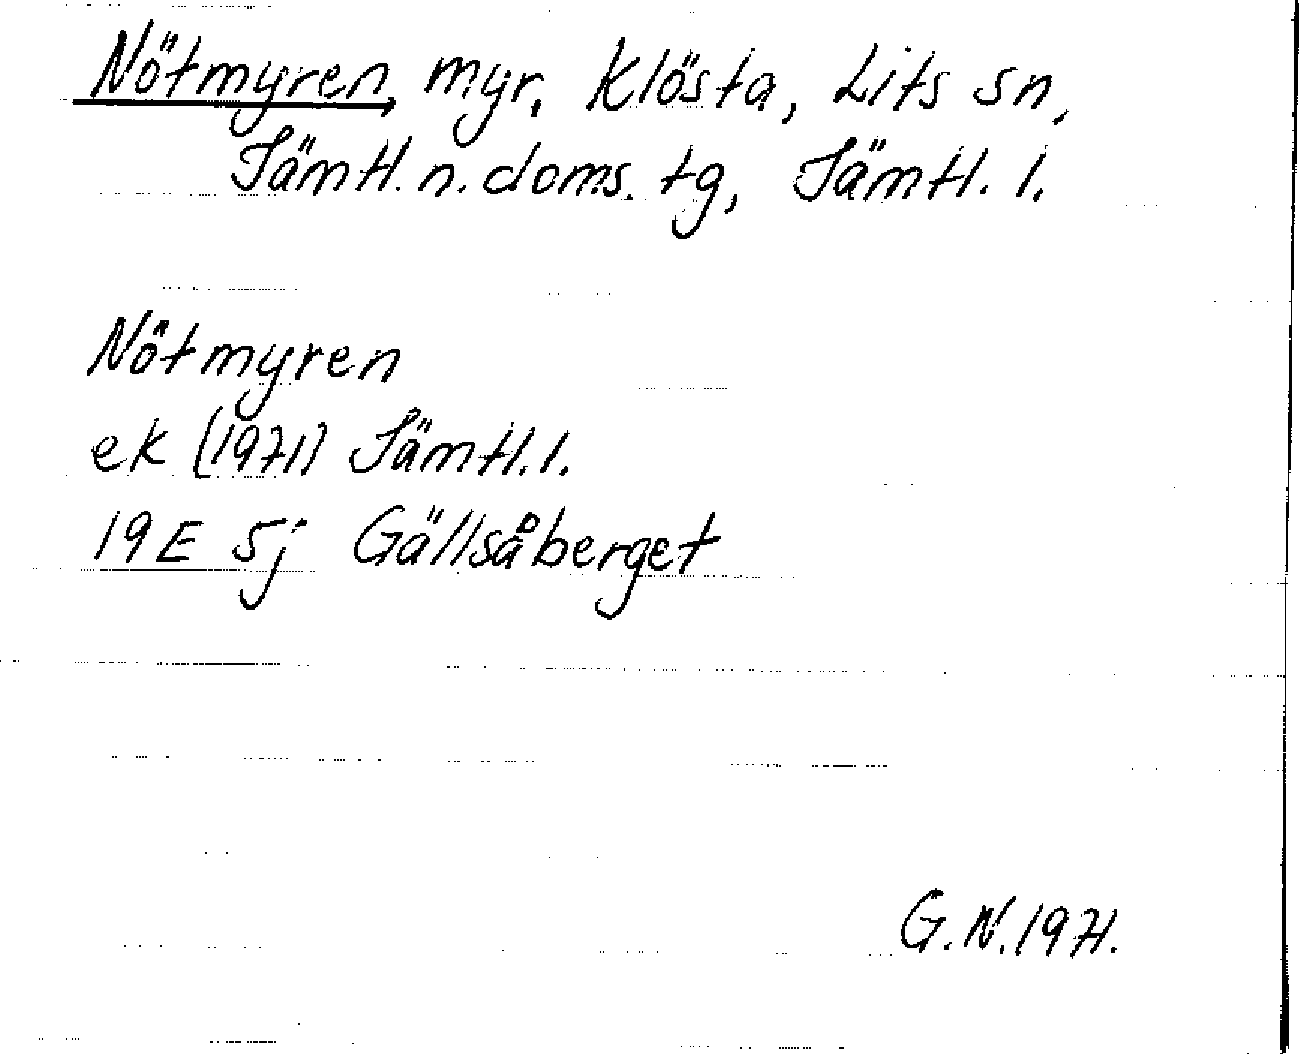 Nötmyren, myr, Klösta, Lits sn,
Jämtl. n. doms. tg, Jämtl. l.
Nötmyren
ek (1971) Jämtl. l.
19E 5j Gällsåberget
G.N. 1971.